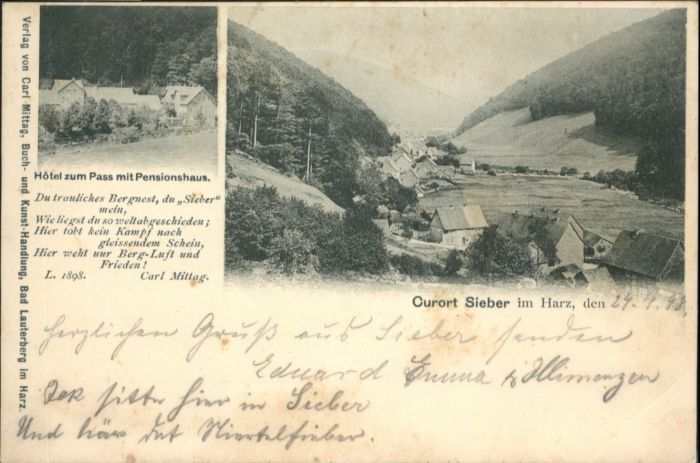 Verlag von Carl Mittag, Buch- und Kunst-Handlung, Bad Lauterberg im Harz.
Hôtel zum Pass mit Pensionshaus.
Du trauliches Bergnest, du „Sieber“
mein,
Wie liegst du so weltabgeschieden;
Hier tobt kein Kampf nach
gleissendem Schein,
Hier weht nur Berg-Luft und
Frieden!
L. 1898. Carl Mittag.
Curort Sieber im Harz, den 24.4.98.
Herzlichen Gruß aus Sieber senden
Eduard Emma
sitte hier in Sieber
Und